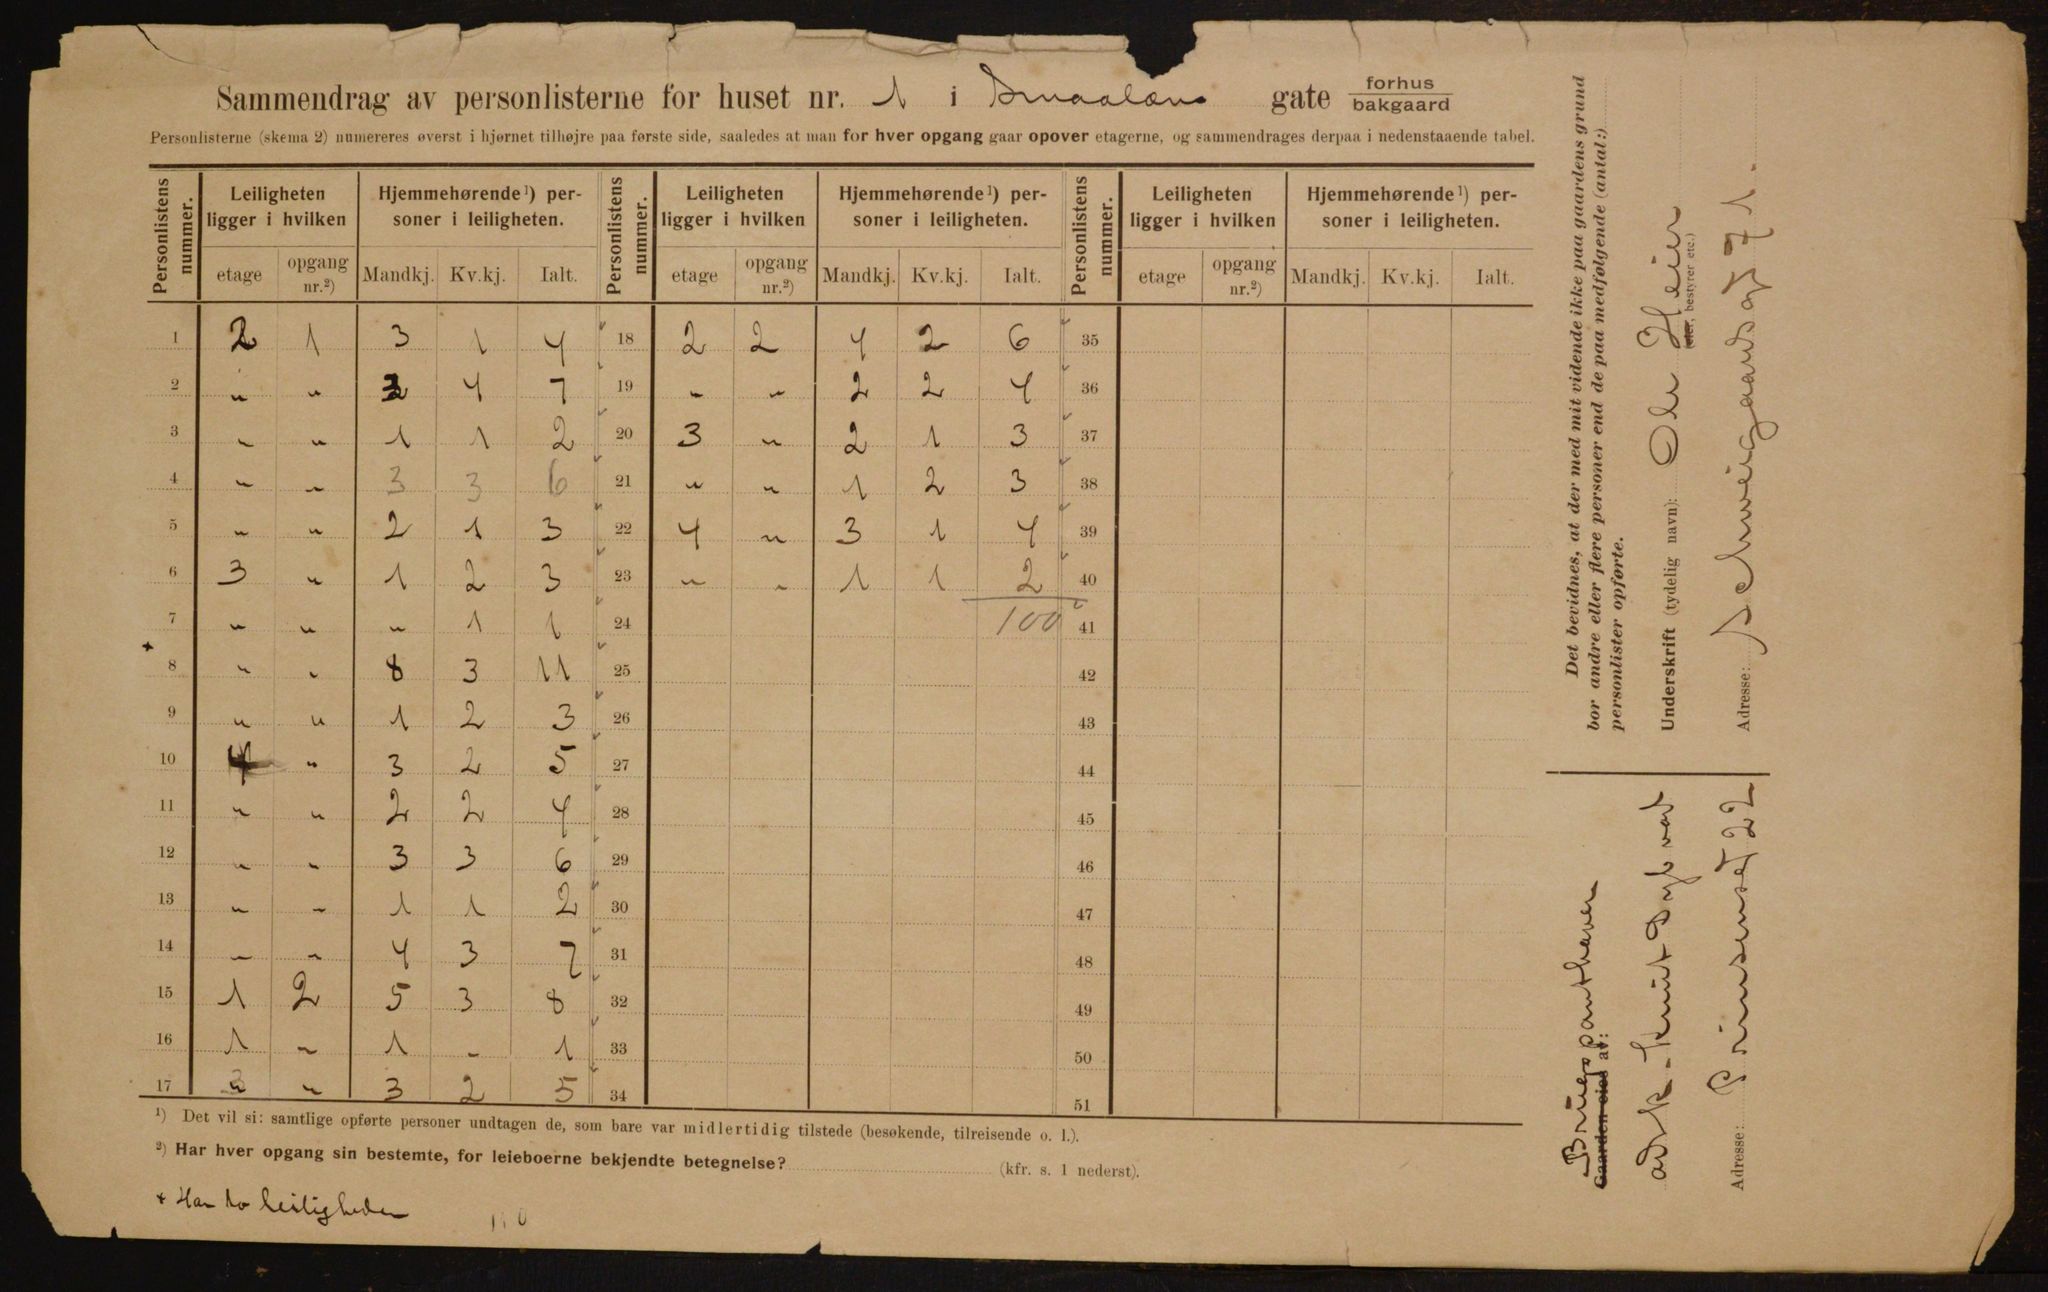 Sammendrag av personlisterne for huset nr. 1 i Smaalens gate forhus
bakgaard
Personlisterne (skema 2) numereres øverst i hjørnet tilhøjre paa første side, saaledes at man for hver opgang gaar opover etagerne, og sammendrages derpaa i nedenstaaende tabel.
Personlistens nummer. Leiligheten ligger i hvilken Hjemmehørende¹) personer i leiligheten. Personlistens nummer. Leiligheten ligger i hvilken Hjemmehørende¹) personer i leiligheten. Personlistens nummer. Leiligheten ligger i hvilken Hjemmehørende¹) personer i leiligheten.
etage opgang nr.²) Mandkj. Kv.kj. Ialt. etage opgang nr.²) Mandkj. Kv.kj. Ialt. etage opgang nr.²) Mandkj. Kv.kj. Ialt.
1 2 1 3 1 4 18 2 2 4 2 6 35
2 " " 3 4 7 19 " " 2 2 4 36
3 " " 1 1 2 20 3 " 2 1 3 37
4 " " 3 3 6 21 " " 1 2 3 38
5 " " 2 1 3 22 4 " 3 1 4 39
6 3 " 1 2 3 23 " " 1 1 2 40
7 " " " 1 1 24 100 41
+ 8 " " 8 3 11 25 42
9 " " 1 2 3 26 43
10 4 " 3 2 5 27 44
11 " " 2 2 4 28 45
12 " " 3 3 6 29 46
13 " " 1 1 2 30 47
14 " " 4 3 7 31 48
15 1 2 5 3 8 32 49
16 1 " 1 - 1 33 50
17 " " 3 2 5 34 51
¹) Det vil si: samtlige opførte personer undtagen de, som bare var midlertidig tilstede (besøkende, tilreisende o. l.).
²) Har hver opgang sin bestemte, for leieboerne bekjendte betegnelse? (kfr. s. 1 nederst).
+ Har to leiligheder
Det bevidnes, at der med mit vidende ikke paa gaardens grund
bor andre eller flere personer end de paa medfølgende (antal:)
personlister opførte.
Underskrift (tydelig navn): Ole Heier
(eier, bestyrer etc.)
Adresse: Schweigaardsgt 71.
Brugspanthaver
Gaarden eies av:
ark. Knut Sylvert
Adresse: Prinsensgt 22